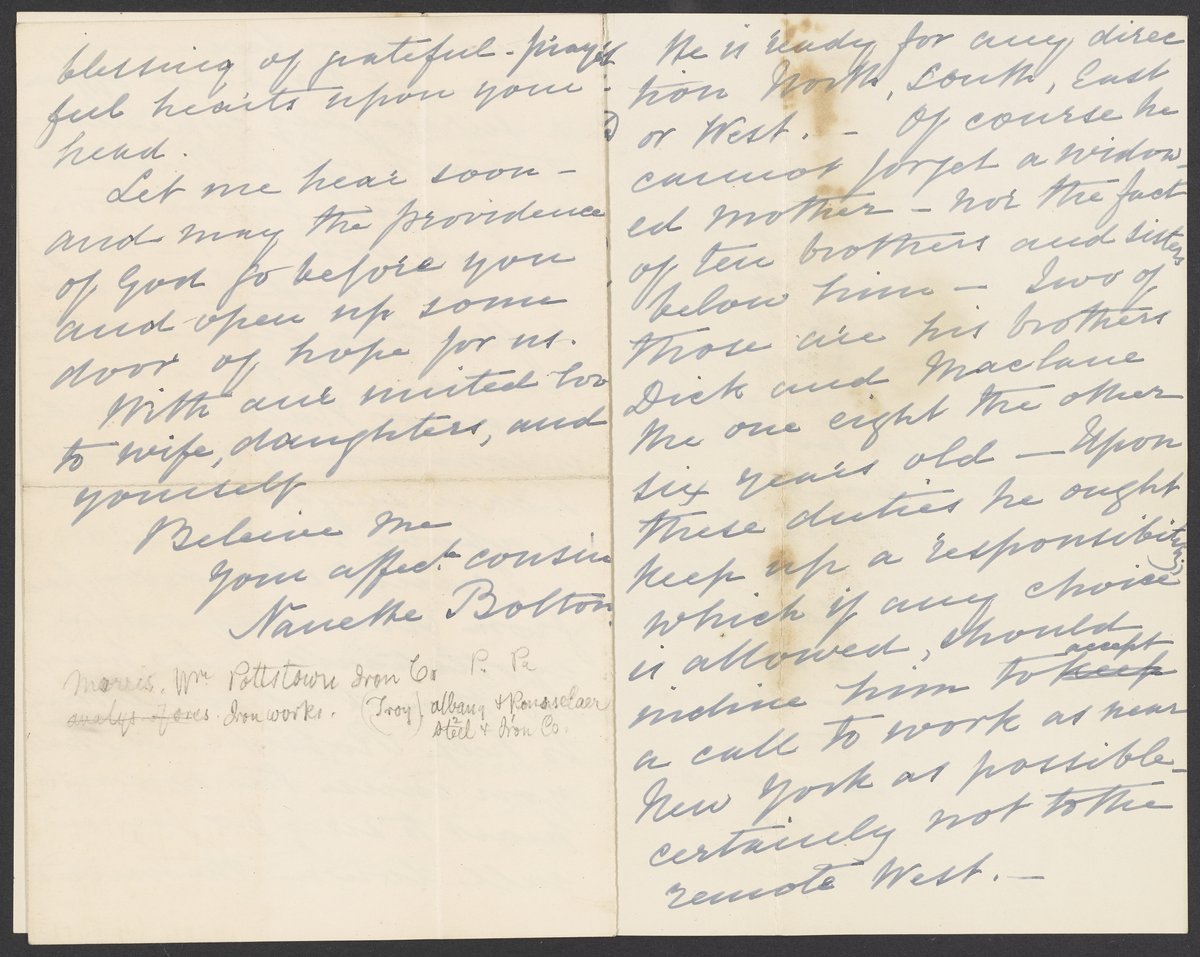 blessing of grateful - pray
ful hearts upon your
head.
Let me hear soon -
and may the providence
of God go before you
and open up some
door of hope for us.
With our united lov
to wife, daughters, and
yourself
Beleive me
Your affect. cousin
Nanette Bolton.
Morris. Wm Pottstown Iron Co P. Pa
analys of ores Iron works. (Troy) albany & Rensselaer
Steel & Iron Co.
He is ready for any direc
tion North, South, East
or West. - Of course he
cannot forget a widow-
ed mother - nor the fact
of ten brothers and sisters
below him - Two of
those are his brothers
Dick and Maclane
the one eight the other
six years old - Upon
these duties he ought
keep up a responsibility
which if any choice
is allowed, should
incline him to keep accept
a call to work as near
New York as possible -
certainly not to the
remote West. -